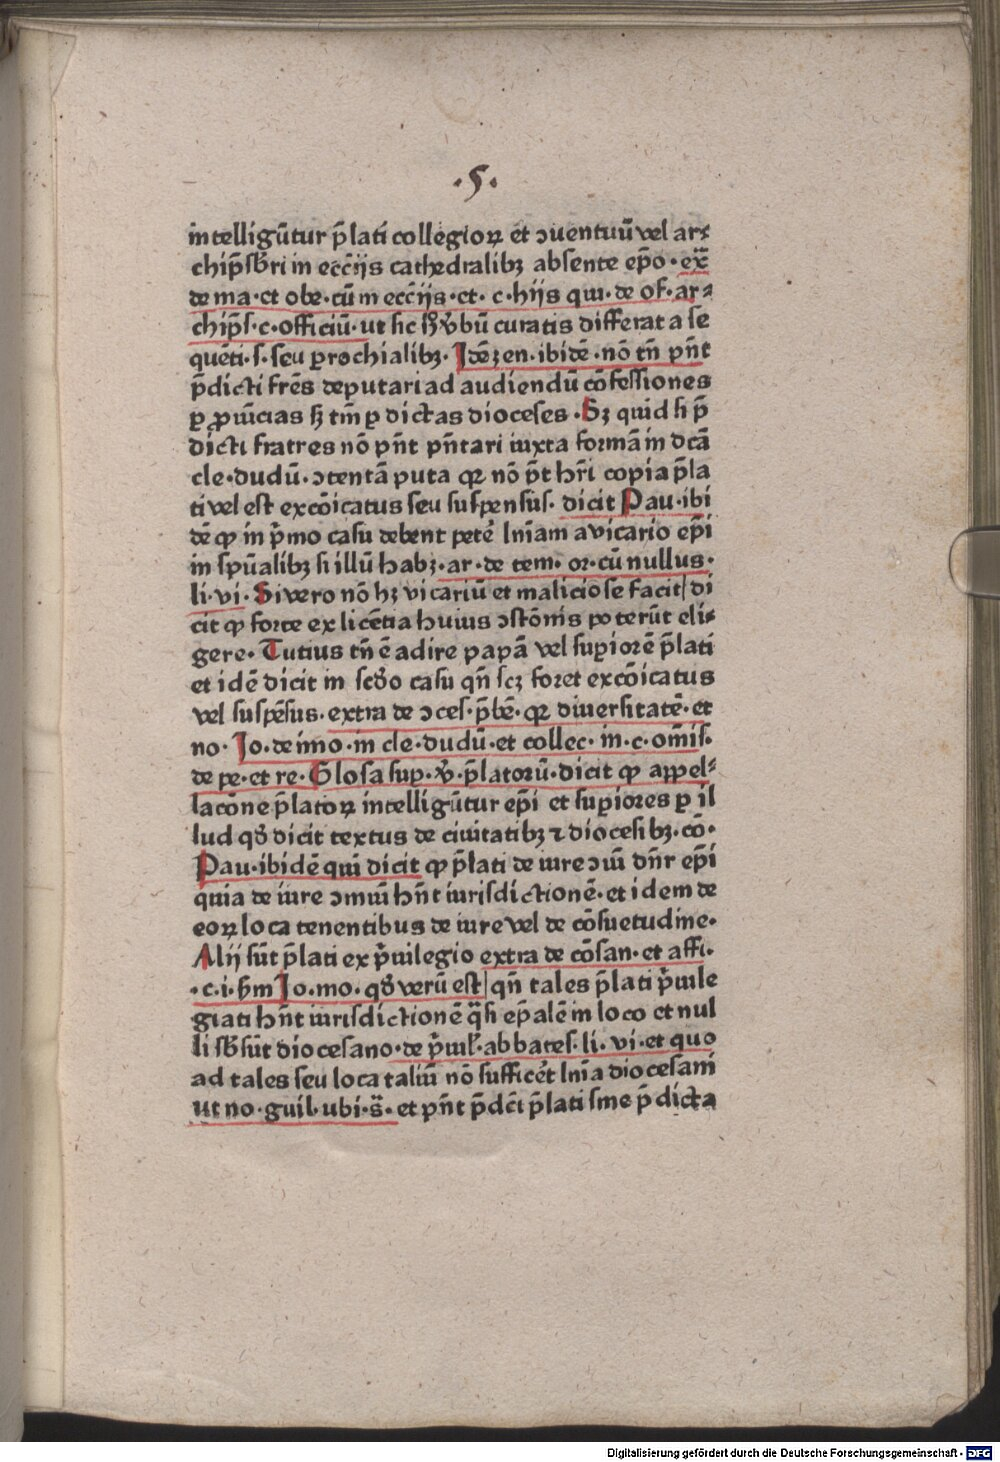 ·5·
intelligūtur p̄lati collegioꝝ et ↄuentuū vel ar⸗
chip̄sbr̄i in ecc̄ijs cathedralibꝫ absente ep̄o · ex̄
de ma · et obe · cū in ecc̄ijs · et · c · hijs qui · de of · ar⸗
chip̄s · c · officiū · ut sic v̄bū curatis differat a se
quēti · s · seu parochialibꝫ · Idē ꝫen · ibidē · nō tn̄ pn̄t
p̄dicti frēs deputari ad audiendū cōfessiones
ꝑ ꝓuīcias sꝫ tm̄ ꝑ dictas dioceses · Sꝫ quid si p̄
dicti fratres nō pn̄t pn̄tari iuxta formā in dcā
cle · dudū · ↄtentā puta qꝛ nō p̄t hr̄i copia p̄la
ti vel est excōicatus seu suspensus · dicit Pau · ibi
dē ꝙ in p̄mo casu debent petē lnīam a vicario ep̄i
in spūalibꝫ si illū habꝫ · ar · de tem · or · cū nullus ·
li · vi · Si vero nō hꝫ vicariū et maliciose facit di
cit ꝙ forte ex licētia huius ↄstōnis poterūt eli⸗
gere · Tutius tn̄ ē adire papā vel supiorē p̄lati
et idē dicit in scd̄o casu qn̄ scꝫ foret excōicatus
vel suspēsus · extra de ↄces · p̄bē · qꝛ diuersitatē · et
no · Jo · de imo · in cle · dudū · et collec · in · c · om̄is ·
de pe · et re · Glosa sup · v̄ · p̄latorū · dicit ꝙ appel⸗
lacōne p̄latoꝝ intelligūtur ep̄i et supiores ꝑ il
lud qd̄ dicit textus de ciuitatibꝫ ⁊ diocesibꝫ · cō ·
Pau · ibidē qui dicit ꝙ p̄lati de iure ↄiū dn̄r ep̄i
quia de iure ↄmuī hn̄t iurisdictionē · et idem de
eoꝝ loca tenentibus de iure vel de cōsuetudine ·
Alij sūt p̄lati ex p̄uilegio extra de cōsan · et affi ·
· c · i · sm̄ Jo · mo · qd̄ verū est qn̄ tales p̄lati p̄uile
giati hn̄t iurisdictionē q̄si ep̄alē in loco et nul
li sb̄sūt diocesano · de p̄uil · abbates · li · vi · et quo
ad tales seu loca taliū nō sufficēt lnīa diocesani
ut no · guil · ubi · s̄ · et pn̄t p̄dc̄i p̄lati sine p̄dicta
Digitalisierung gefördert durch die Deutsche Forschungsgemeinschaft - DFG